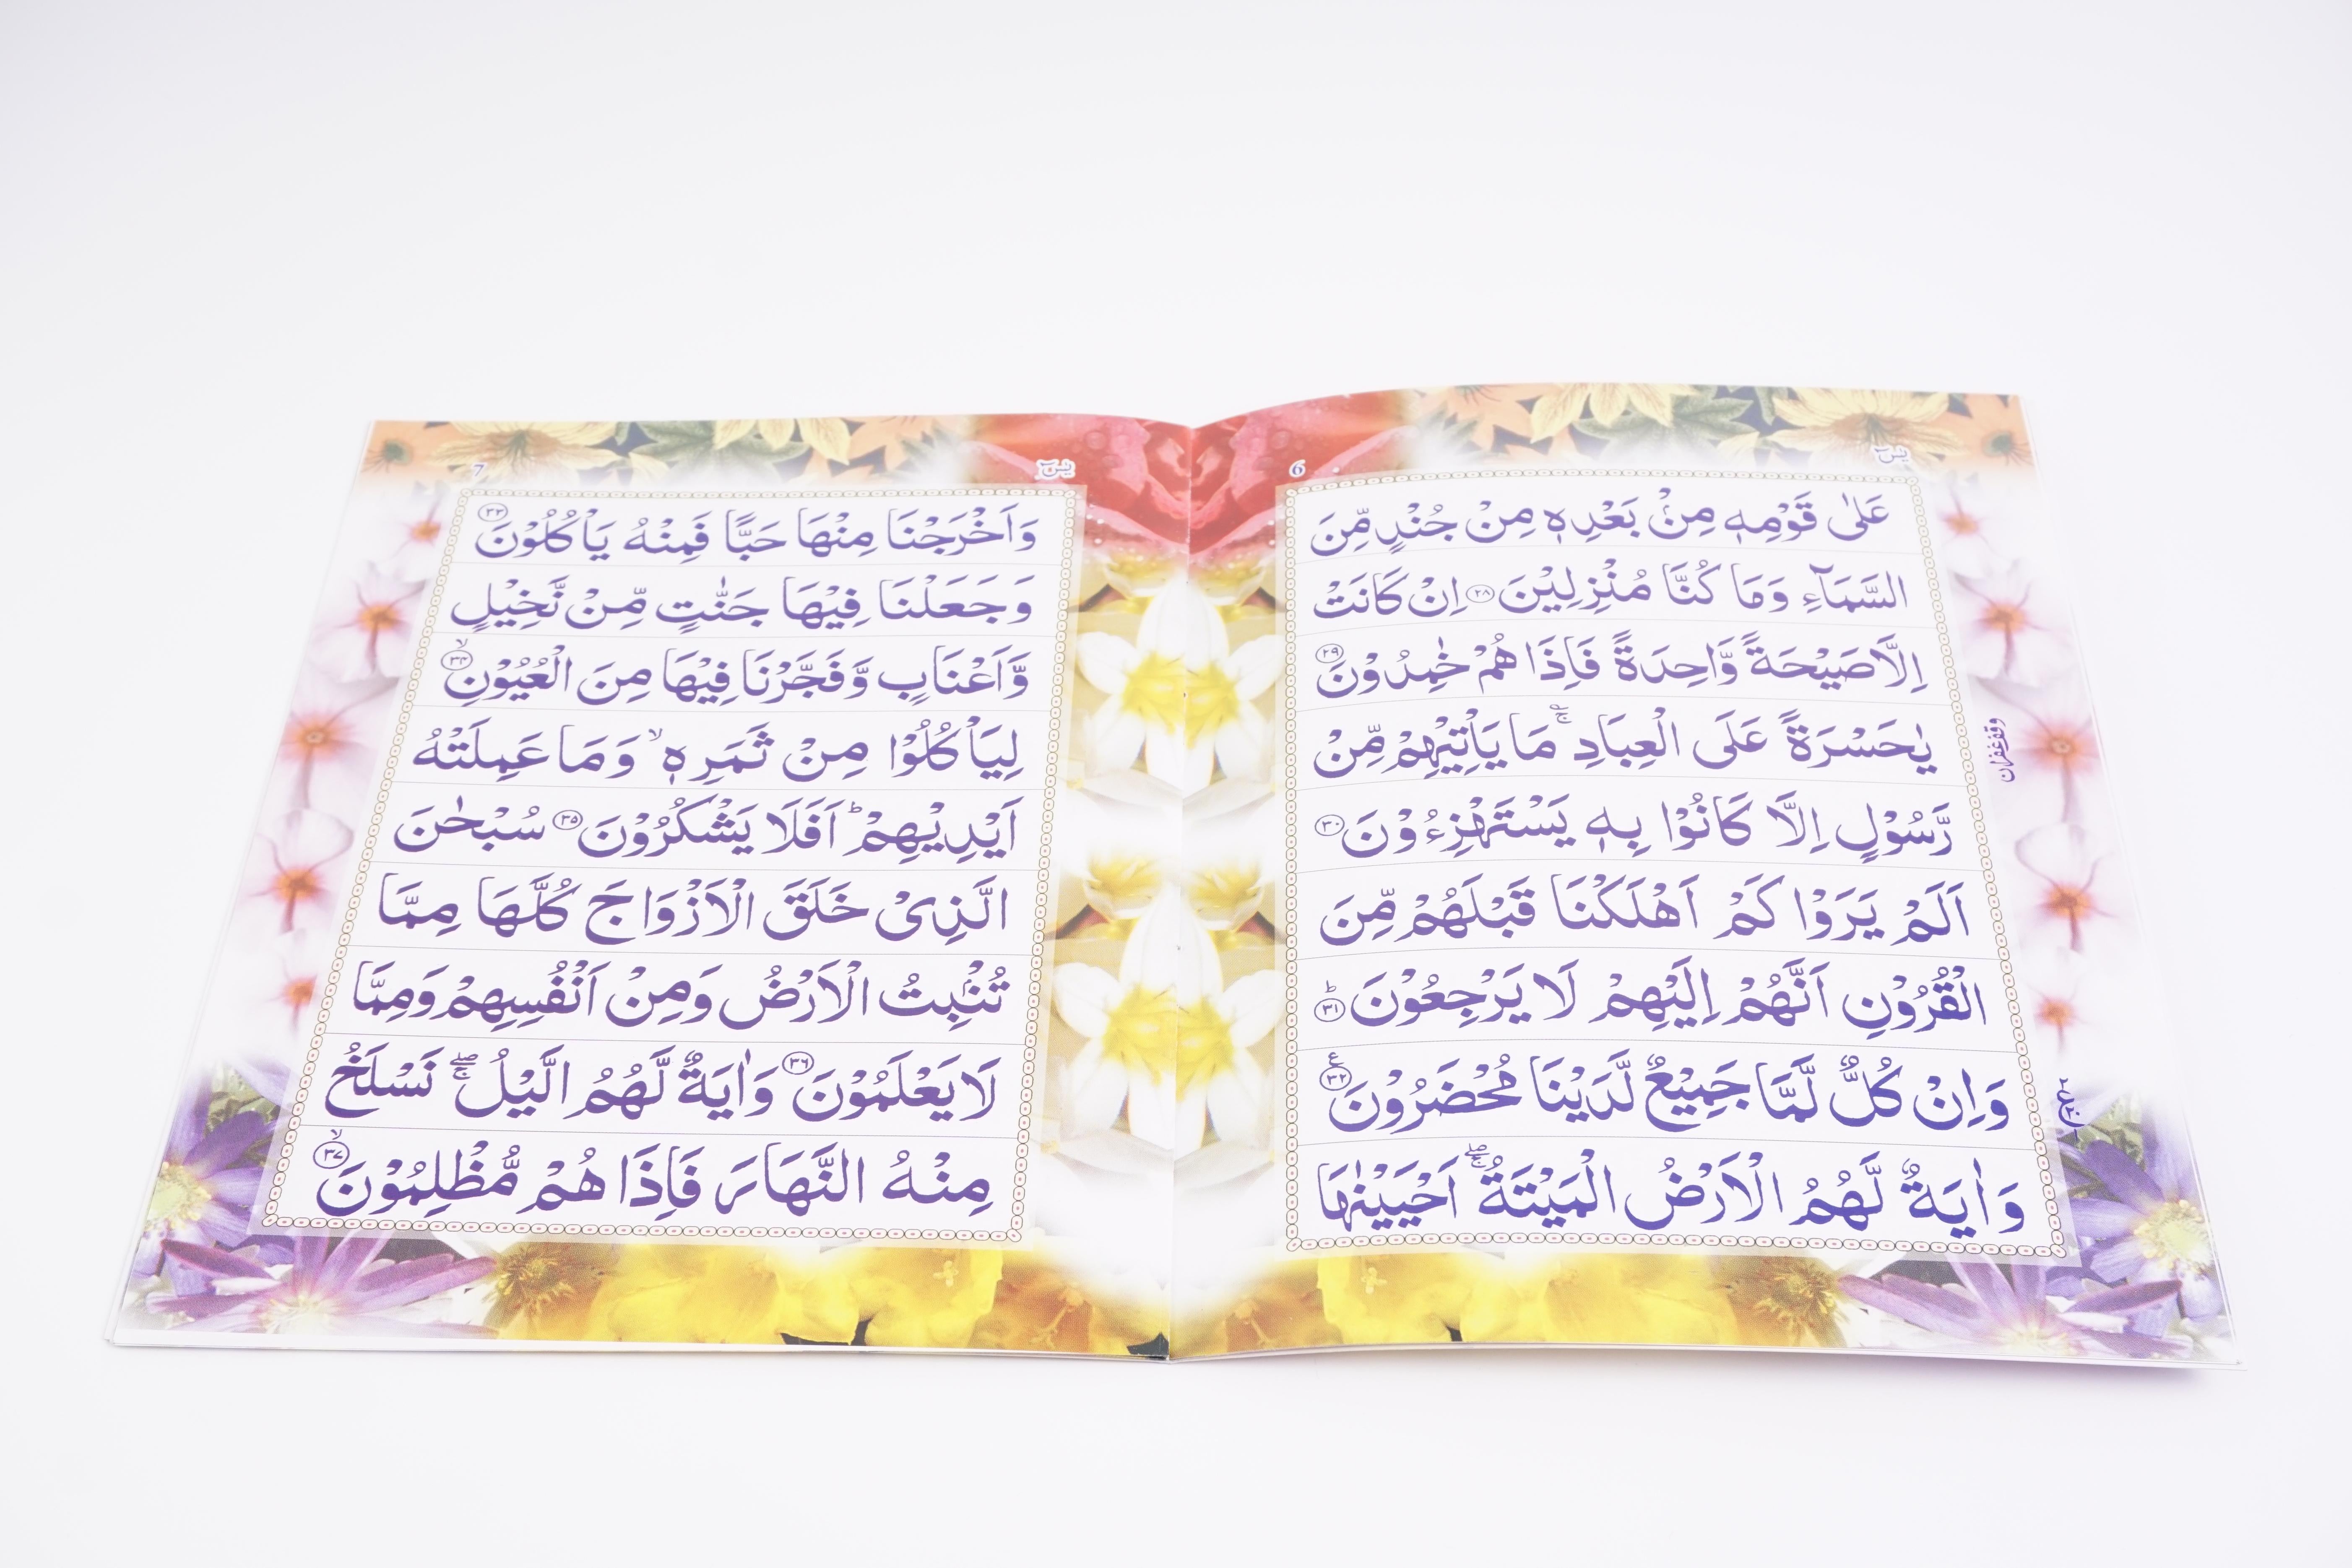 یٰسٓ
6
عَلٰی قَوْمِهٖ مِنْۢ بَعْدِهٖ مِنْ جُنْدٍ مِّنَ
السَّمَآءِ وَمَا كُنَّا مُنْزِلِیْنَ ۝۲۸ اِنْ كَانَتْ
اِلَّا صَیْحَةً وَّاحِدَةً فَاِذَا هُمْ خٰمِدُوْنَ ۝۲۹
یٰحَسْرَةً عَلَی الْعِبَادِ ۚ مَا یَاْتِیْهِمْ مِّنْ
رَّسُوْلٍ اِلَّا كَانُوْا بِهٖ یَسْتَهْزِءُوْنَ ۝۳۰
اَلَمْ یَرَوْا كَمْ اَهْلَكْنَا قَبْلَهُمْ مِّنَ
الْقُرُوْنِ اَنَّهُمْ اِلَیْهِمْ لَا یَرْجِعُوْنَ ۝۳۱ؕ
وَاِنْ كُلٌّ لَّمَّا جَمِیْعٌ لَّدَیْنَا مُحْضَرُوْنَ ۝۳۲ع
وَاٰیَةٌ لَّهُمُ الْاَرْضُ الْمَیْتَةُ ۖۚ اَحْیَیْنٰهَا
وقف غفران
یٰسٓ
7
وَاَخْرَجْنَا مِنْهَا حَبًّا فَمِنْهُ یَاْكُلُوْنَ ۝۳۳
وَجَعَلْنَا فِیْهَا جَنّٰتٍ مِّنْ نَّخِیْلٍ
وَّاَعْنَابٍ وَّفَجَّرْنَا فِیْهَا مِنَ الْعُیُوْنِ ۝۳۴ۙ
لِیَاْكُلُوْا مِنْ ثَمَرِهٖ ۙ وَمَا عَمِلَتْهُ
اَیْدِیْهِمْ ؕ اَفَلَا یَشْكُرُوْنَ ۝۳۵ سُبْحٰنَ
الَّذِیْ خَلَقَ الْاَزْوَاجَ كُلَّهَا مِمَّا
تُنْۢبِتُ الْاَرْضُ وَمِنْ اَنْفُسِهِمْ وَمِمَّا
لَا یَعْلَمُوْنَ ۝۳۶ وَاٰیَةٌ لَّهُمُ الَّیْلُ ۖۚ نَسْلَخُ
مِنْهُ النَّهَارَ فَاِذَا هُمْ مُّظْلِمُوْنَ ۝۳۷ۙ